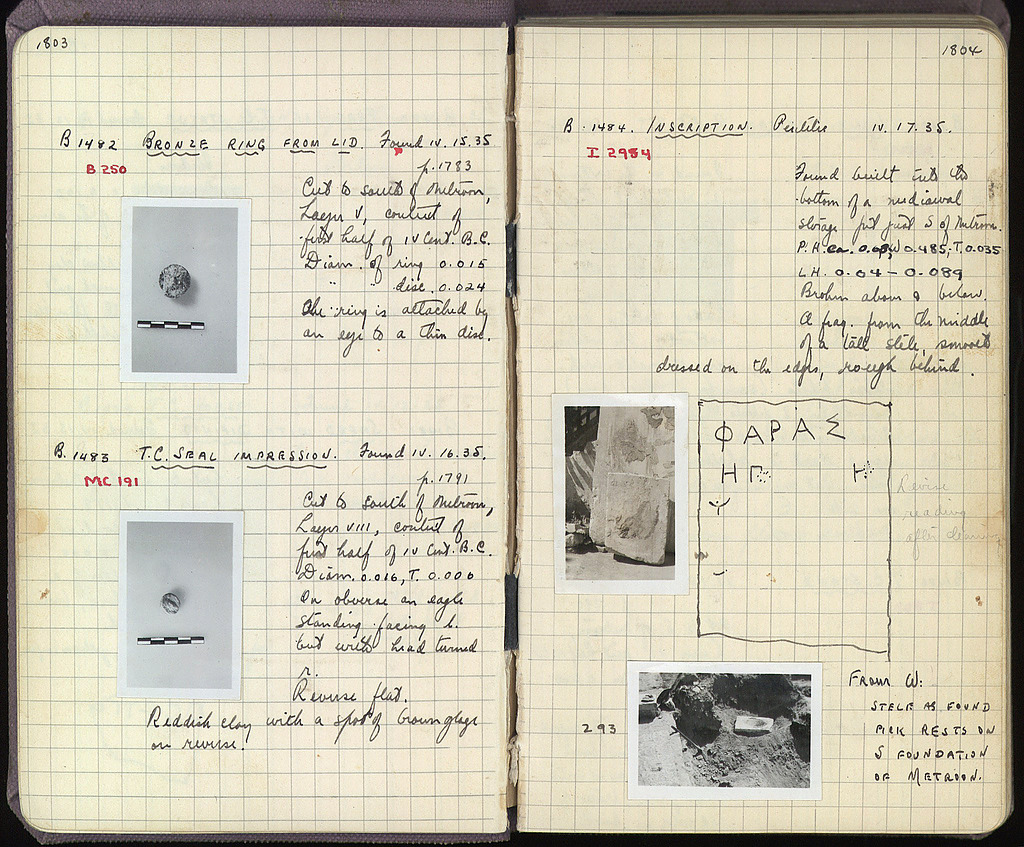 1803
B 1482 BRONZE RING FROM LID. Found IV. 15.35
B 250
p. 1783
Cut to south of Metroon,
Layer V, context of
first half of IV Cent. B.C.
Diam. of ring 0.015
" " disc. 0.024
The ring is attached by
an eye to a thin disc.
B. 1483 T.C. SEAL IMPRESSION. Found IV. 16.35.
MC 191
p. 1791
Cut to South of Metroon,
Layer VIII, context of
first half of IV Cent. B.C.
Diam. 0.016, T. 0.006
On obverse an eagle
standing facing l.
but with head turned
r.
Reverse flat.
Reddish clay with a spot of brown glaze
on reverse.
1804
B. 1484. INSCRIPTION. IV. 17.35.
I 2984
Found built into the
bottom of a mediaeval
storage pit just S of Metroon.
P.H. ca. W 0.485, T. 0.035
L.H. 0.04 – 0.089
Broken above & below.
A frag. from the middle
of a tall stele, smooth
dressed on the edges, rough behind.
ΦΑΡΑΣ
ΗΠ Η
Revise
reading
after cleaning
293
FROM W:
STELE AS FOUND
PICK RESTS ON
S FOUNDATION
OF METROON.